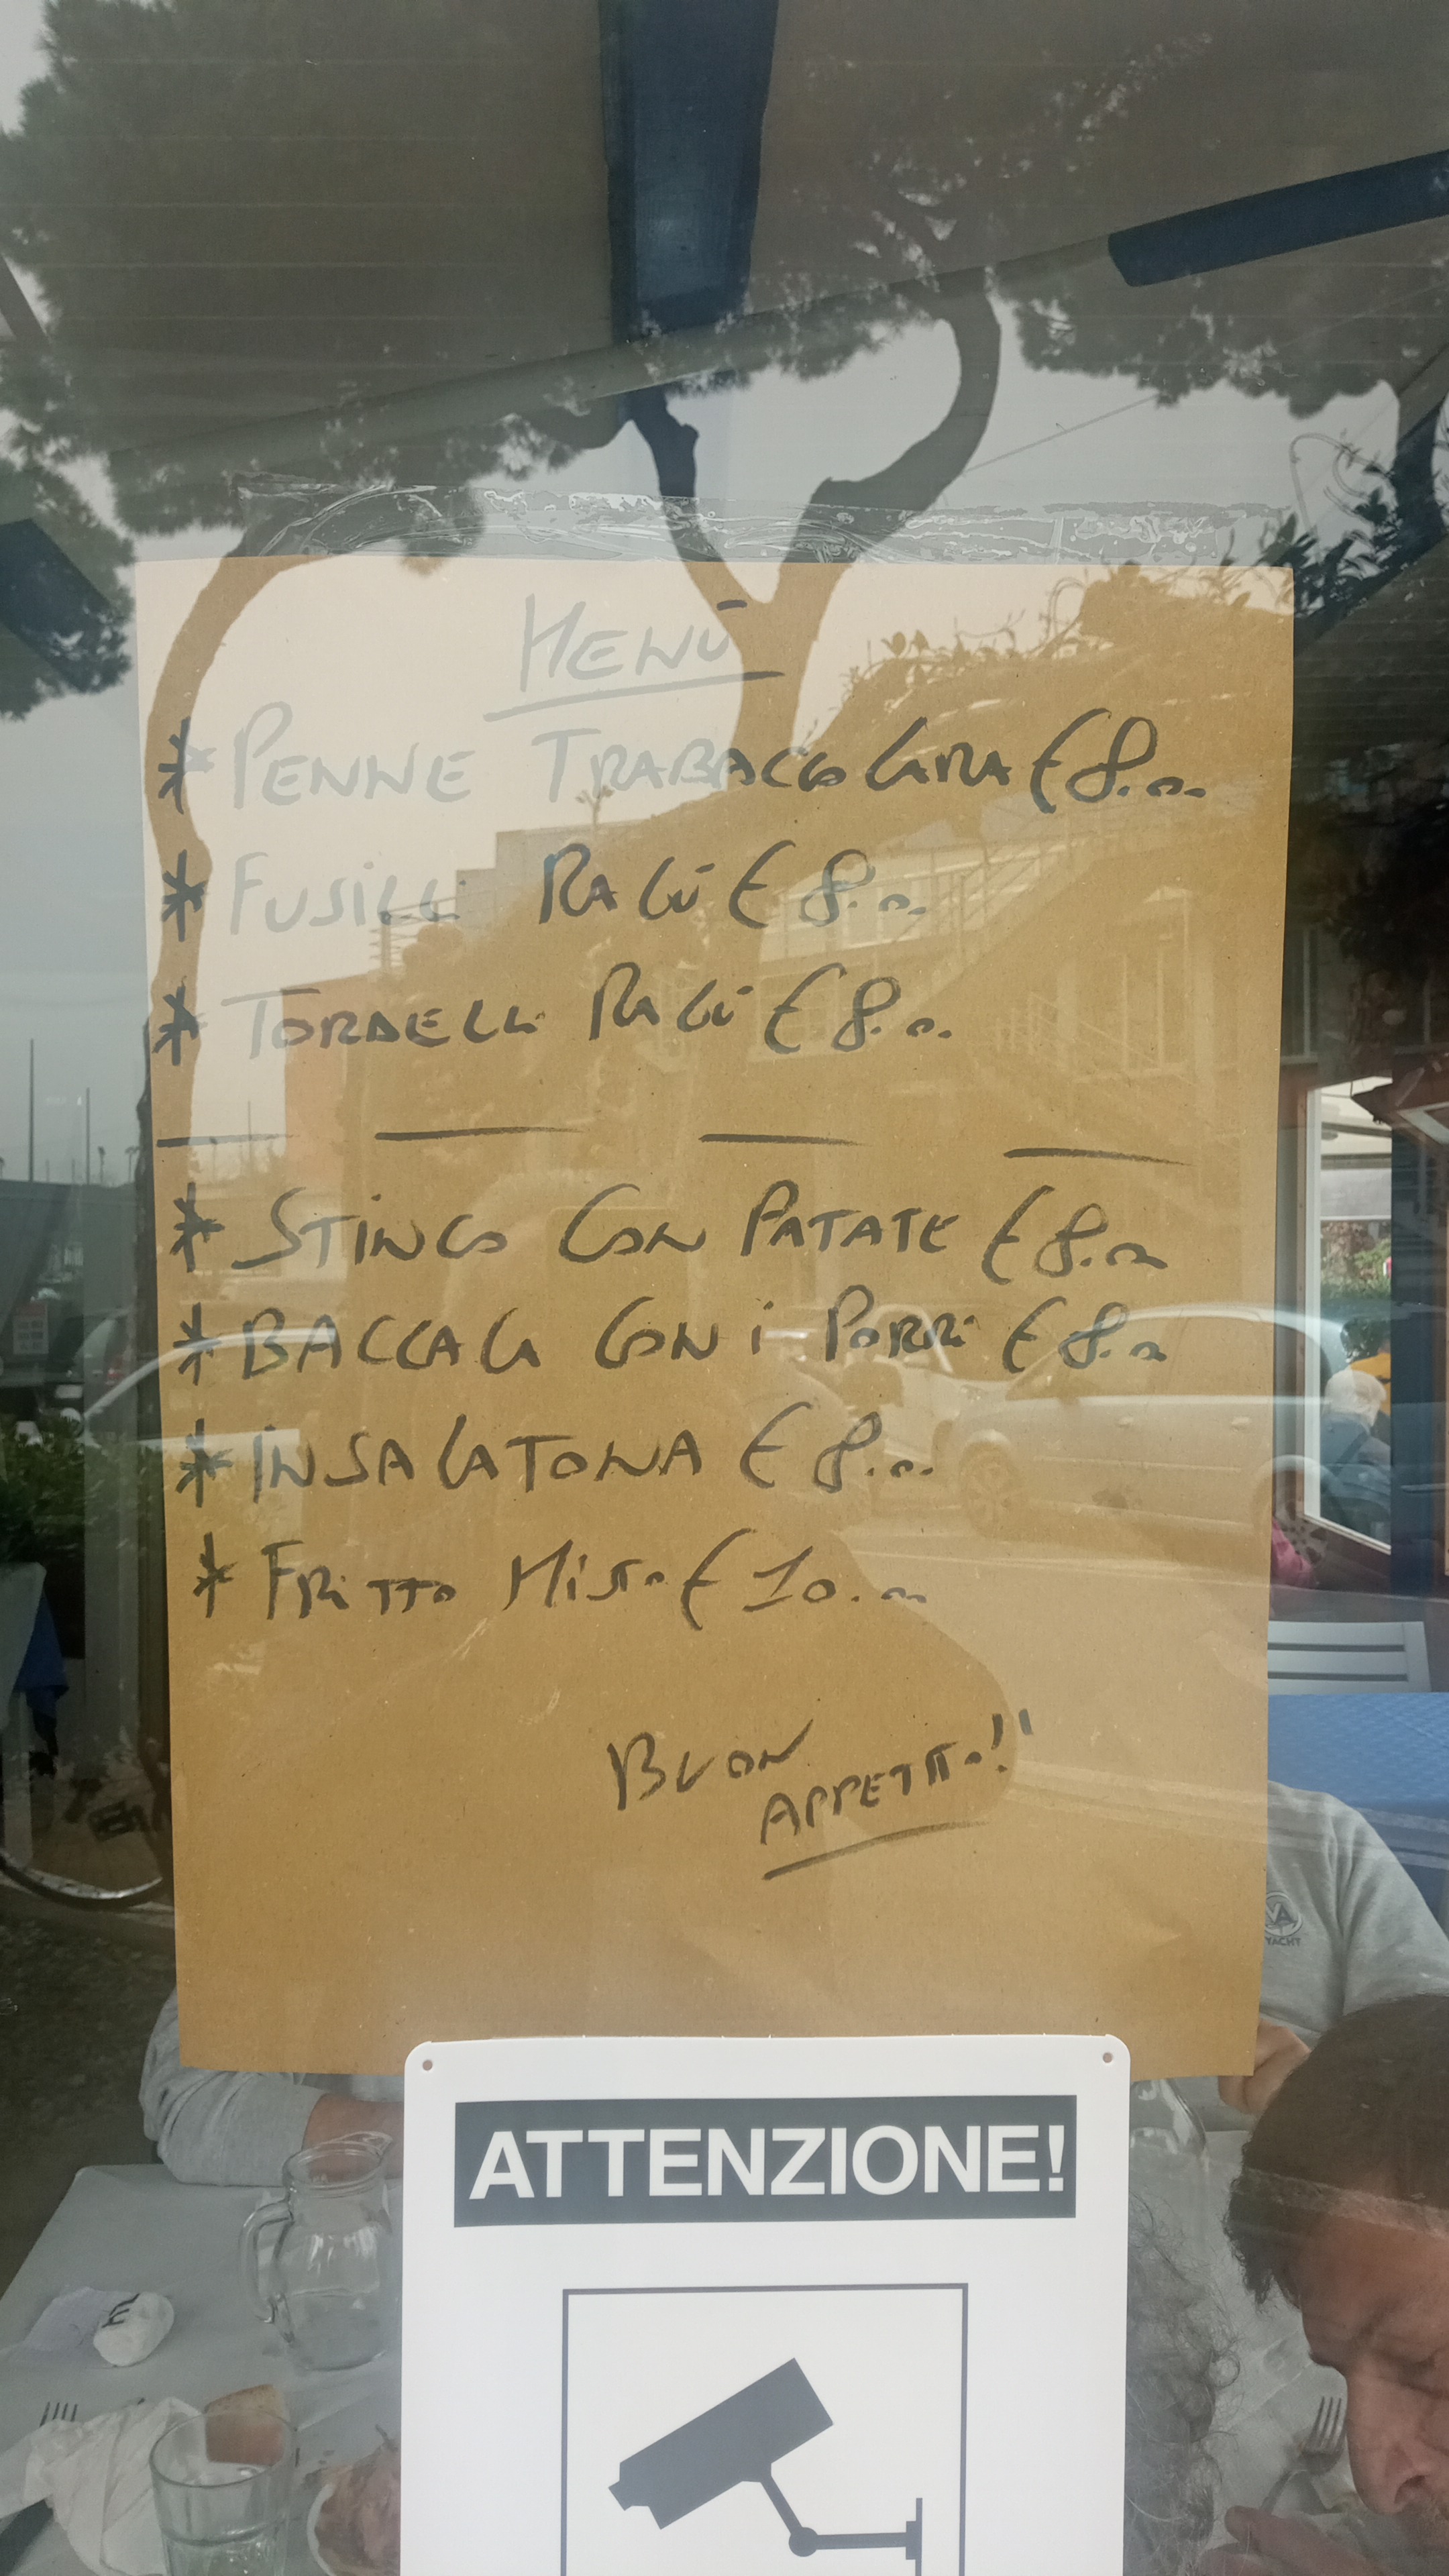 MENÙ
* PENNE TRABACCOLARA € 8.00
* FUSILLI RAGÙ € 8.00
* TORDELLI RAGÙ € 8.00
* STINCO CON PATATE € 8.00
* BACCALA CON i PORRI € 8.00
* INSALATONA € 8.00
* FRITTO MISTO € 10.00
BUON
APPETITO!!
ATTENZIONE!
YACHT